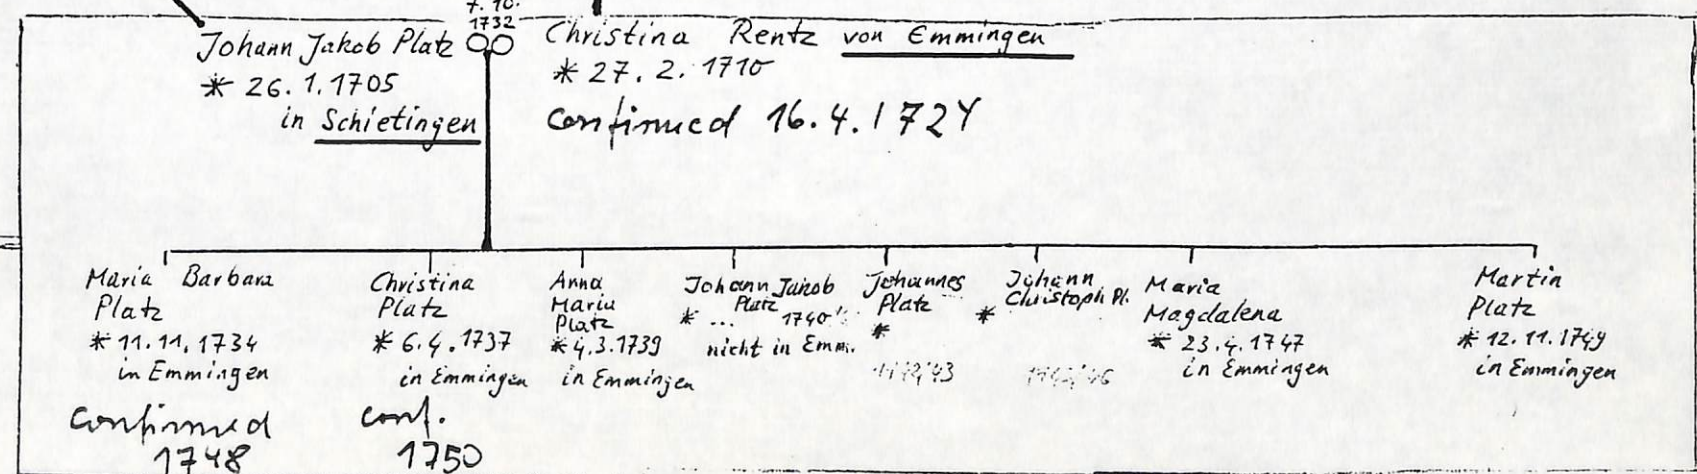 7. 10.
1732
Johann Jakob Platz
* 26. 1. 1705
in Schietingen
Christina Rentz von Emmingen
* 27. 2. 1710
confirmed 16. 4. 1724
Maria Barbara
Platz
* 11. 11. 1734
in Emmingen
confirmed
1748
Christina
Platz
* 6. 4. 1737
in Emmingen
conf.
1750
Anna
Maria
Platz
* 4. 3. 1739
in Emmingen
Johann Jakob
Platz
* ... 1740
nicht in Emm.
Johannes
Platz
*
Johann
Christoph Pl.
*
Maria
Magdalena
* 23. 4. 1747
in Emmingen
Martin
Platz
* 12. 11. 1749
in Emmingen